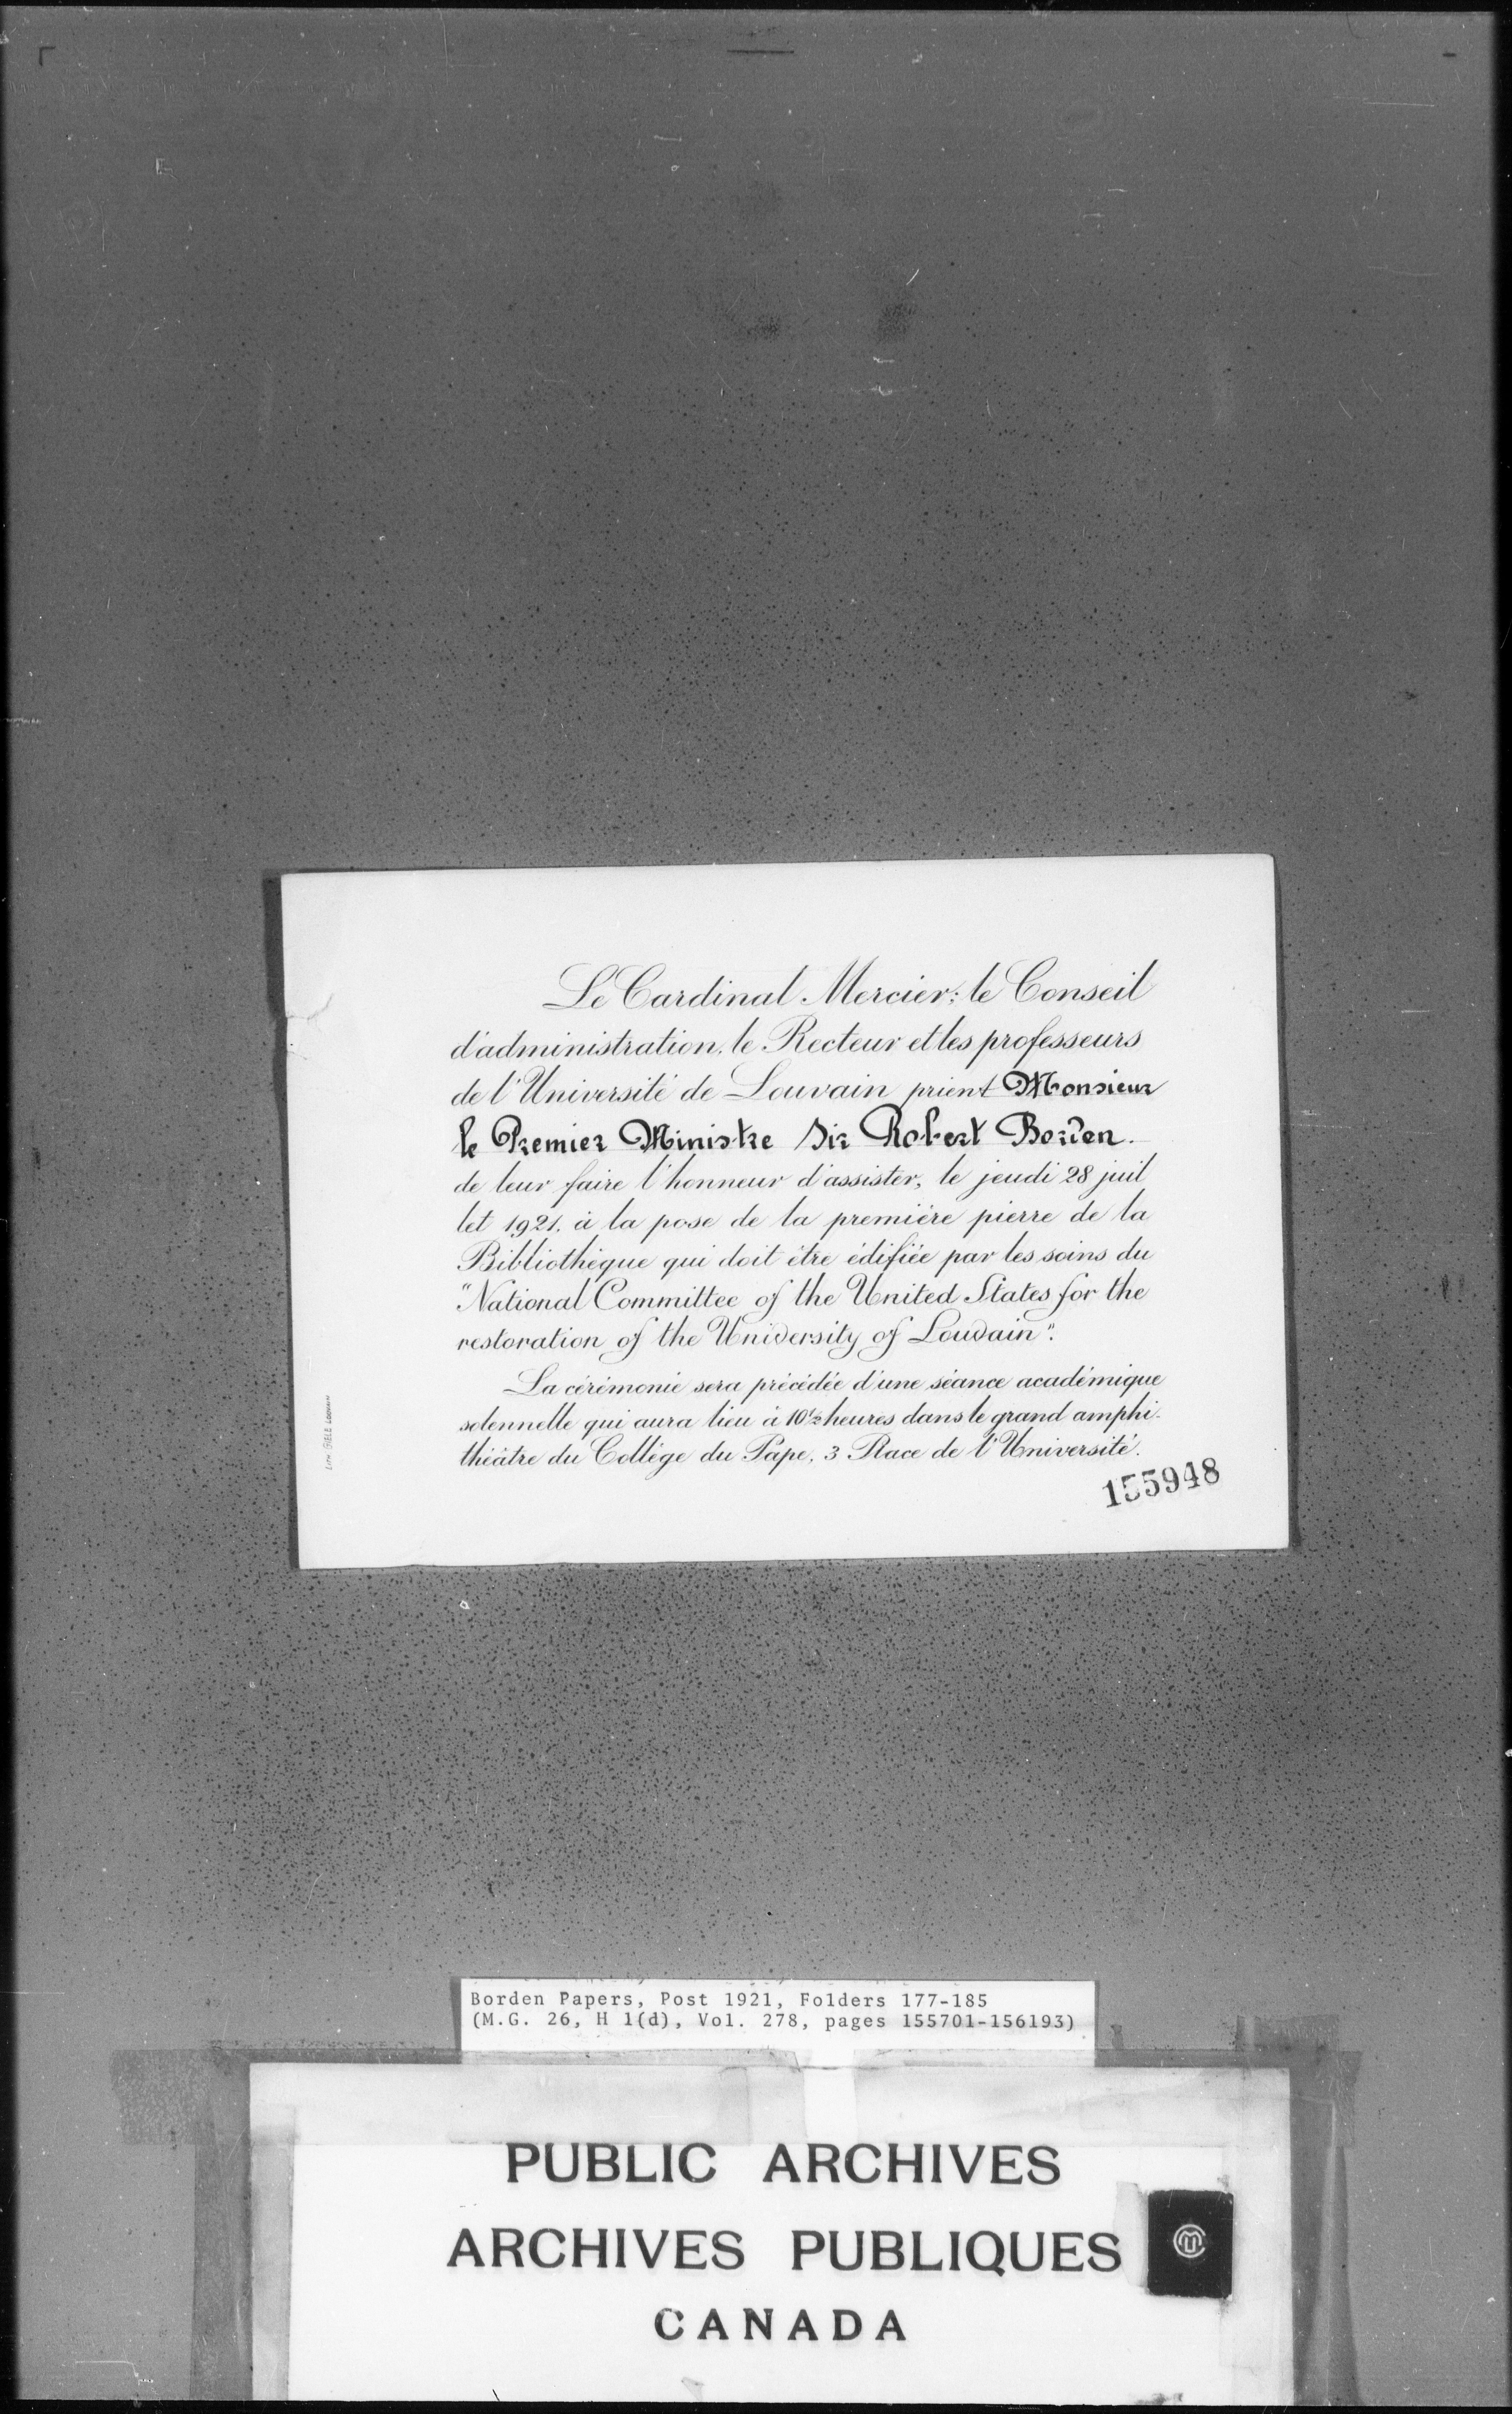 Le Cardinal Mercier; le Conseil
d'administration, le Recteur et les professeurs
de l'Université de Louvain prient Monsieur
le Premier Ministre Sir Robert Borden.
de leur faire l'honneur d'assister, le jeudi 28 juil
let 1921, à la pose de la première pierre de la
Bibliothèque qui doit être édifiée par les soins du
"National Committee of the United States for the
restoration of the University of Louvain".
La cérémonie sera précédée d'une séance académique
solennelle qui aura lieu à 10½ heures dans le grand amphi-
théâtre du Collège du Pape, 3 Place de l'Université.
LITH GIELE LOUVAIN
155948
Borden Papers, Post 1921, Folders 177-185
(M.G. 26, H 1(d), Vol. 278, pages 155701-156193)
PUBLIC ARCHIVES
ARCHIVES PUBLIQUES
CANADA